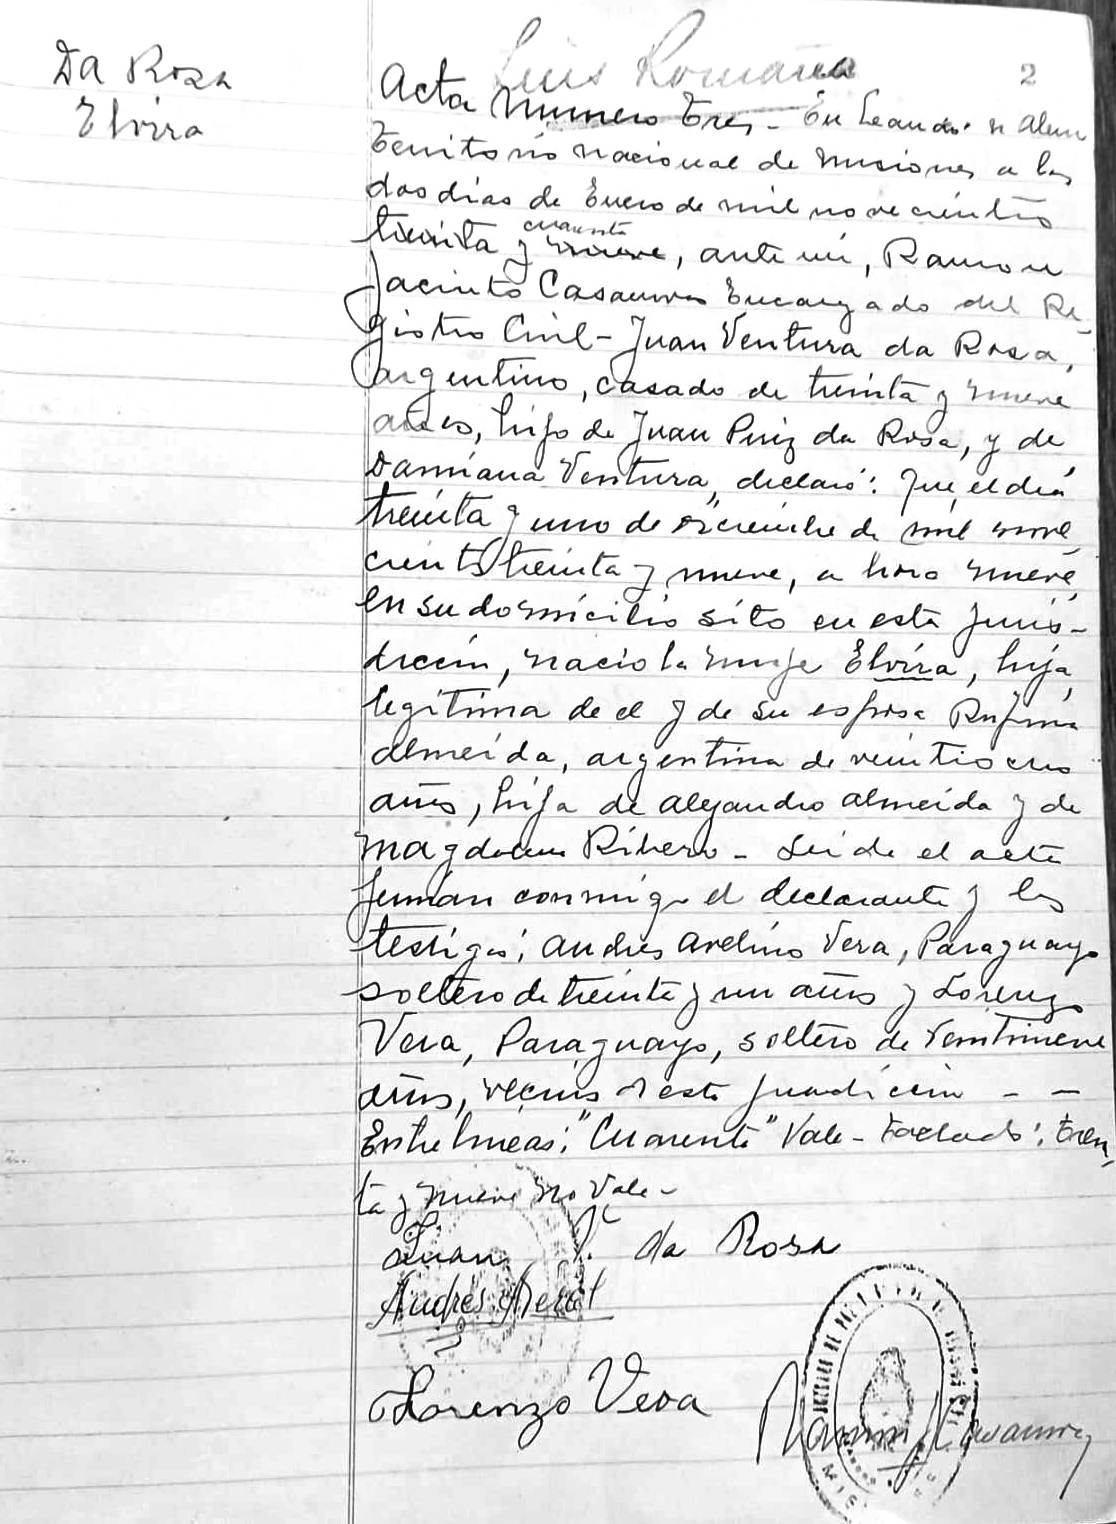 Da Rosa
Elvira
Luis Romaña
2
Acta Número Tres - En Leandro N Alem
Territorio nacional de Misiones a los
dos dias de Enero de mil novecientos
cuarenta
treinta y nueve, ante mi, Ramon
Jacinto Casamor Encargado del Re-
gistro Civil - Juan Ventura da Rosa,
argentino, casado de treinta y nueve
años, hijo de Juan da Rosa, y de
Damiana Ventura, declaró: Que, el dia
treinta y uno de Diciembre de mil nove
cientos treinta y nueve, a hora nueve
en su domicilio sito en esta juris-
diccion, nacio la mujer Elvira, hija
legitima de el y de su esposa Rufina
Almeida, argentina de veintiocho
años, hija de Alejandro Almeida y de
Magdalena Ribero - Leida el acta
firman conmigo el declarante y los
testigos: Andres Avelino Vera, Paraguayo
soltero de treinta y un años y Lorenzo
Vera, Paraguayo, soltero de veintinueve
años, vecinos de esta jurisdiccion - -
Entre lineas: "Cuarenta" Vale - Tachado: Trein
ta y nueve no Vale -
Juan V. da Rosa
Andrés A Vera
Lorenzo Vera
Ramon J Casamor
MIS